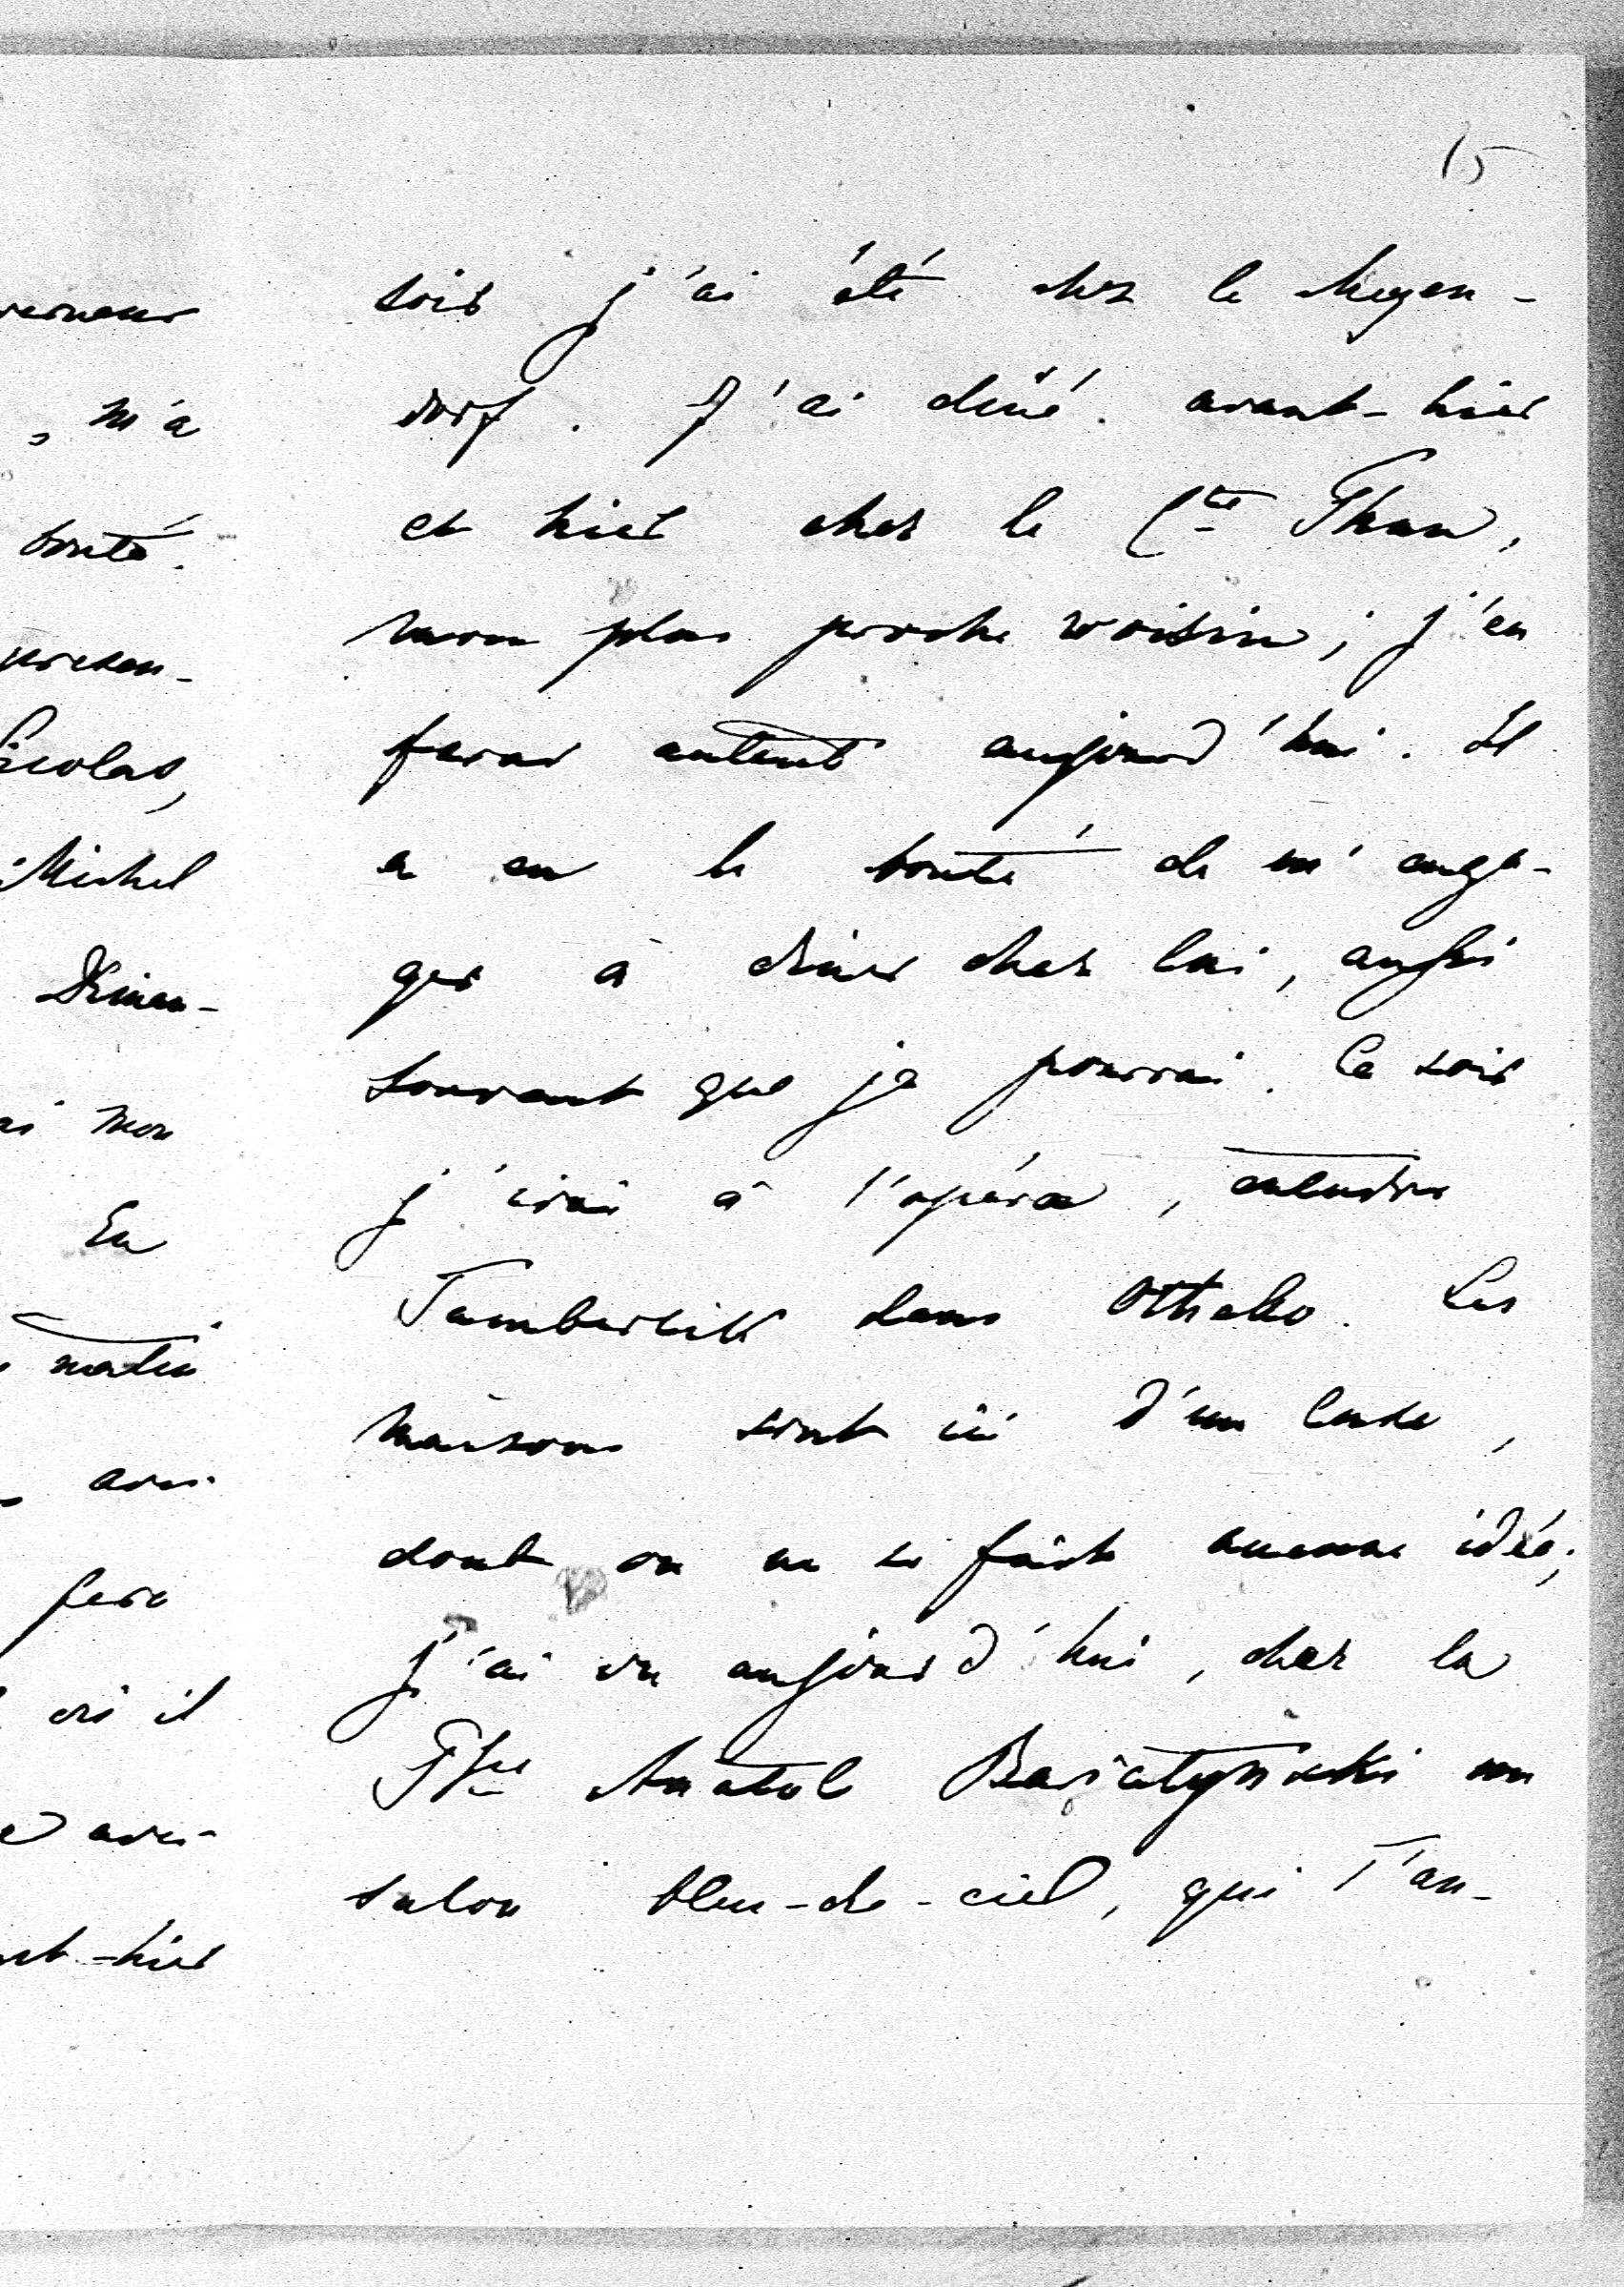 15
soir j'ai été chez le Meyen-
dorf. J'ai dîné avant-hier
et hier chez le Cte Thun,
mon plus proche voisin; j'en
ferai autant aujourd'hui. Il
a eu la bonté de m'enga-
ger à dîner chez lui, aussi
souvent que je pourrai. Ce soir
j'irai à l'opéra, entendre
Tamberlik dans Othello. Les
maisons sont ici d'un luxe,
dont on ne se fait aucune idée;
j'ai vu aujourd'hui, chez la
Psse Anatol Bariatynski un
salon bleu-de-ciel, qui l'an-
, m'a
bonté.
Nicolas,
Michel
Diman-
mon
En
matin
fera
où il